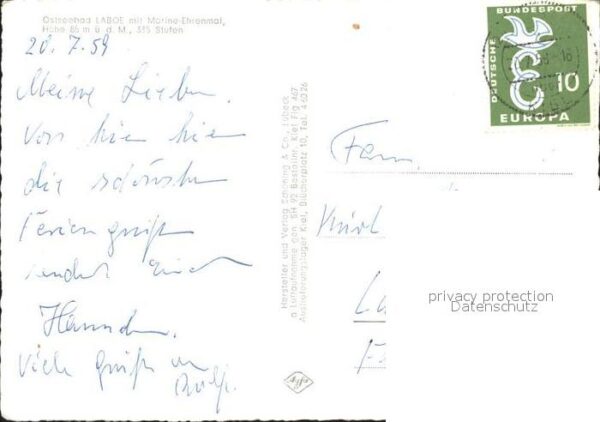 Ostseebad LABOE mit Marine-Ehrenmal,
Höhe 85 m ü. d. M., 
20.7.59
Meine Lieben.
Von hier
die schönsten
Feriengrüße
sendet Euch
Hannchen.
Viele Grüße an
Rolf.
Hersteller und Verlag Schöning & Co., Lübeck
Luftaufnahme gen. SH 92 Bastallier, Kiel Flg 467
Auslieferungslager Kiel, Blücherplatz 10, Tel. 46026
Agfa
DEUTSCHE BUNDESPOST
10
EUROPA
Fam.
privacy protection
Datenschutz